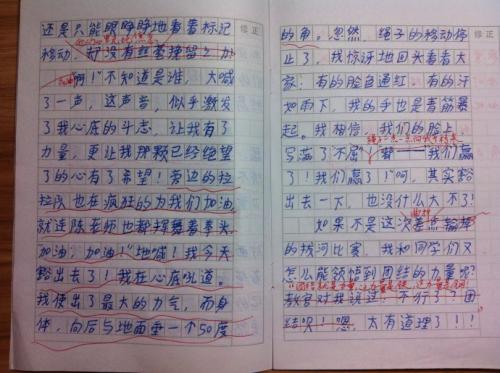 修正
还是只能眼睁睁地看着标记
移动，却没有丝毫挽留之力
啊！"不知道是谁，大喊
了一声，这声音，似乎激发
了我心底的斗志，让我有了
力量，更让我那颗已经绝望
了的心有了希望！旁边的拉
拉队也在疯狂的为我们加油
就连陈老师也都挥舞着拳头
加油，加油！"地喊！我今天
豁出去了！我在心底吼道。
我使出了最大的力气，而身
体，向后与地面垂一个50度
修正
的角。忽然，绳子的移动停
止了，我惊讶地回头看看大
家：有的脸色通红，有的汗
如雨下，我的手也是青筋暴
起。我相信，我们的脸上，
写满了不屈"
我们赢
了！我们赢了！"呵，其实豁
出去一下，也没什么大不了！
如果不是这次差点输掉
的拔河比赛，我和同学们又
怎么能领悟到团结的力量呢？
教官对我说过：不行了？团
结呗！嗯，太有道理了！！